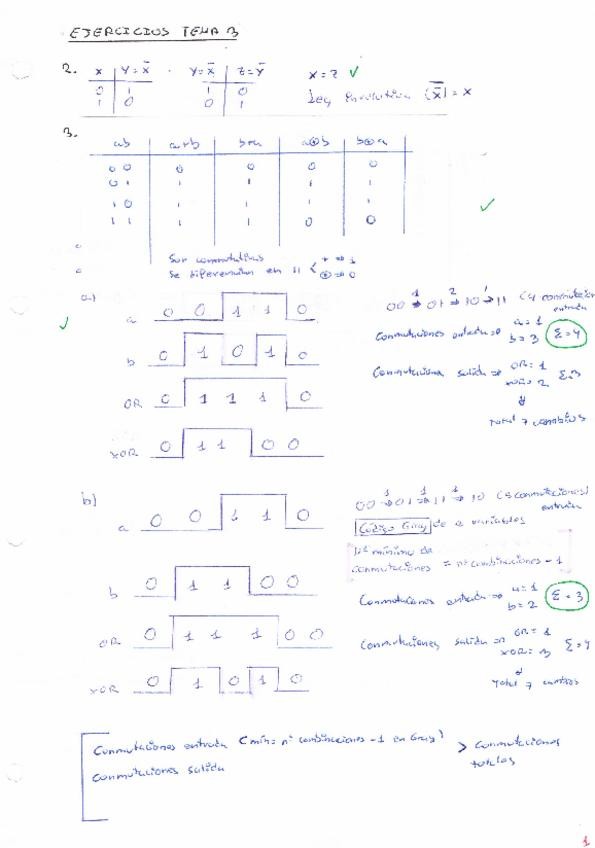 EJERCICIOS TEMA 3
2. x y=x̄ · y=x̄ z=ȳ x=z ✓
0 1 1 0 Ley Involutiva (x̿)=x
1 0 0 1
3.
ab a+b b+a a⊕b b⊕a
00 0 0 0 0
01 1 1 1 1
10 1 1 1 1
11 1 1 0 0
✓
Son conmutativas
Se diferencian en 11 < + ⇒ 1
⊕ ⇒ 0
a)
a 0 0 1 1 0
✓
b 0 1 0 1 0
OR 0 1 1 1 0
XOR 0 1 1 0 0
00 →1 01 →2 10 →1 11 (4 conmutaciones
entrada
Conmutaciones entrada ⇒ a=1
b=3 Σ=4
Conmutaciones salida ⇒ OR=1
XOR=2 Σ=3
Total 7 cambios
b)
a 0 0 1 1 0
b 0 1 1 0 0
OR 0 1 1 1 0 0
XOR 0 1 0 1 0
00 →1 01 →1 11 →1 10 (3 conmutaciones)
entrada
Código Gray de 2 variables
Nº mínimo de
conmutaciones = nº combinaciones - 1
Conmutaciones entrada ⇒ a=1
b=2 Σ=3
Conmutaciones salida ⇒ OR=1
XOR=3 Σ=4
Total 7 cambios
Conmutaciones entrada (mín= nº combinaciones -1 en Gray)
Conmutaciones salida
> Conmutaciones
totales
1